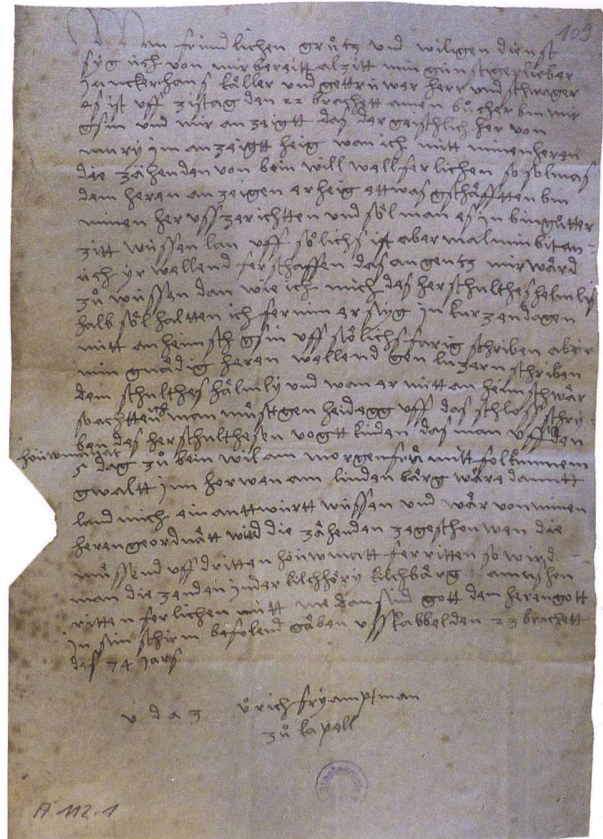 109
Min fründlichen grůtz und wiligen dienst
syg üch von mir bereitt alzitt min günstiger lieber
Jenckerhans käller und gettrüwer herr und schwager
es ist uff zistag den 22 brachett amen bůcher bin mir
gsin und mir an zeigtt das der geischlich her von
mury im an zeigtt heig wan ich mitt minen heren
die zähenden von bein will well ferlichen so sol mas
dem heren an zeigen er heig ettwas gschäfften bin
minen her uss zerichtten und söl man es in bin gutter
zitt wüssen lan uff sölichs ist aber mal min bitten
üch yr wellend ferschaffen das angentz mir wärd
zů wüssen dan wie ich mich des her schultheshelmlis
halb söl haltten ich fernim er syg in kurzen dagen
nitt an heimsch gsin uff sölichs
min gnädig heren wellend gen luzern schriben
dem schulthes hälmly und wan er nitt an heimsch wär
so achtten ich man müst gen heidegg uff das schloss schry
ben des her schulthessen vogtt kinden das man uff den
höuwmanat
5 dag zů bein wil am morgen frü mitt folkumnem
gwaltt im horwen am linden bärg wäre damitt
land mich ein anttwürtt wüssen und wär von minen
heren geordnätt wird die zähenden zegeschouwen die
müssend uff dritten höuwmatt ferritten so wird
man die zenden in der kilchhöry kilchbärg
ritten ferlichen nütt me dan sind gott dem heren gott
in sin schirm befolend gäben uss kabbel den 23 brachett
des 74 jars
v d a z ůrich fry amptman
zů kapell
A 112.1